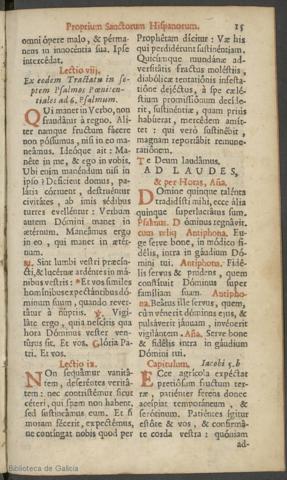 Proprium Sanctorum Hispanorum. 15
omni ópere malo, & pérma-
nens in innocéntia sua. Ipse
intercédat.
Lectio viij.
Ex eodem Tractatu in se-
ptem Psalmos Pœniten-
tiales ad 6. Psalmum.
QUi manet in Verbo, non
fraudábit à regno. Ali-
ter namque fructum fácere
non póssumus, nisi in eo ma-
neámus. Ideóque ait: Ma-
nête in me, & ego in vobis.
Ubi enim manéndum nisi in
ipso? Déciient domus, pa-
látia córruent, destruéntur
civitátes, ab imis sédibus
turres evelléntur: Verbum
autem Dómini manet in
ætérnum. Maneámus ergo
in eo, qui manet in æter-
num.
℟. Sint lumbi vestri præcín-
cti, & lucérnæ ardéntes in má-
nibus vestris: * Et vos símiles
homínibus expectántibus dó-
minum suum, quando rever-
tátur à núptiis. ℣. Vigi-
láte ergo, quia nescítis qua
hora Dóminus vester ven-
túrus sit. Et vos. Glória Pa-
tri. Et vos.
Lectio ix.
NOn sequámur vanitá-
tem, deserétes veritá-
tem: nec contristémur sicut
céteri, qui spem non habent,
sed sustineámus eum. Et si
moram fécerit, expectémus,
ne contingat nobis quod per
Prophétam dícitur: Væ his
qui perdidérunt sustinéntiam.
Quicúnque mundánæ ad-
versitátis fractus moléstiis,
diabólicæ tentatiónis infestá-
tióne dejéctus, à spe cælé-
stium promissiónum decíde-
rit, sustinéntiæ, quam priùs
habúerat, mercédem amít-
tet: qui verò sustinúerit
magnam reportábit remune-
ratiónem.
Te Deum laudámus.
AD LAUDES,
& per Horas, Aña.
DOmine quinque talénta
tradidísti mihi, ecce ália
quinque superlucrátus sum.
Psalmus. Dóminus regnávit,
cum reliq. Antiphona. Eu-
ge serve bone, in módico fi-
délis, intra in gáudium Dó-
mini tui. Antiphona. Fidé-
lis servus & prudens, quem
constítuit Dóminus super
famíliam suam. Antipho-
na. Beátus ille servus, quem,
cùm vénerit dóminus ejus, &
pulsáverit jánuam, invénerit
vigilántem. Aña. Serve bone
& fidélis intra in gáudium
Dómini tui.
Capitulum. Iacobi 5. b
ECce agrícola expéctat
pretiósum fructum ter-
ræ, patiénter ferens donec
accípiat temporáneum, &
serótinum. Patiéntes ígitur
estóte & vos, & confirmá-
te corda vestra: quóniam
ad-
Biblioteca de Galicia